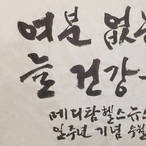 여분 없는
늘 건강
메디팜헬스뉴스
일주년 기념